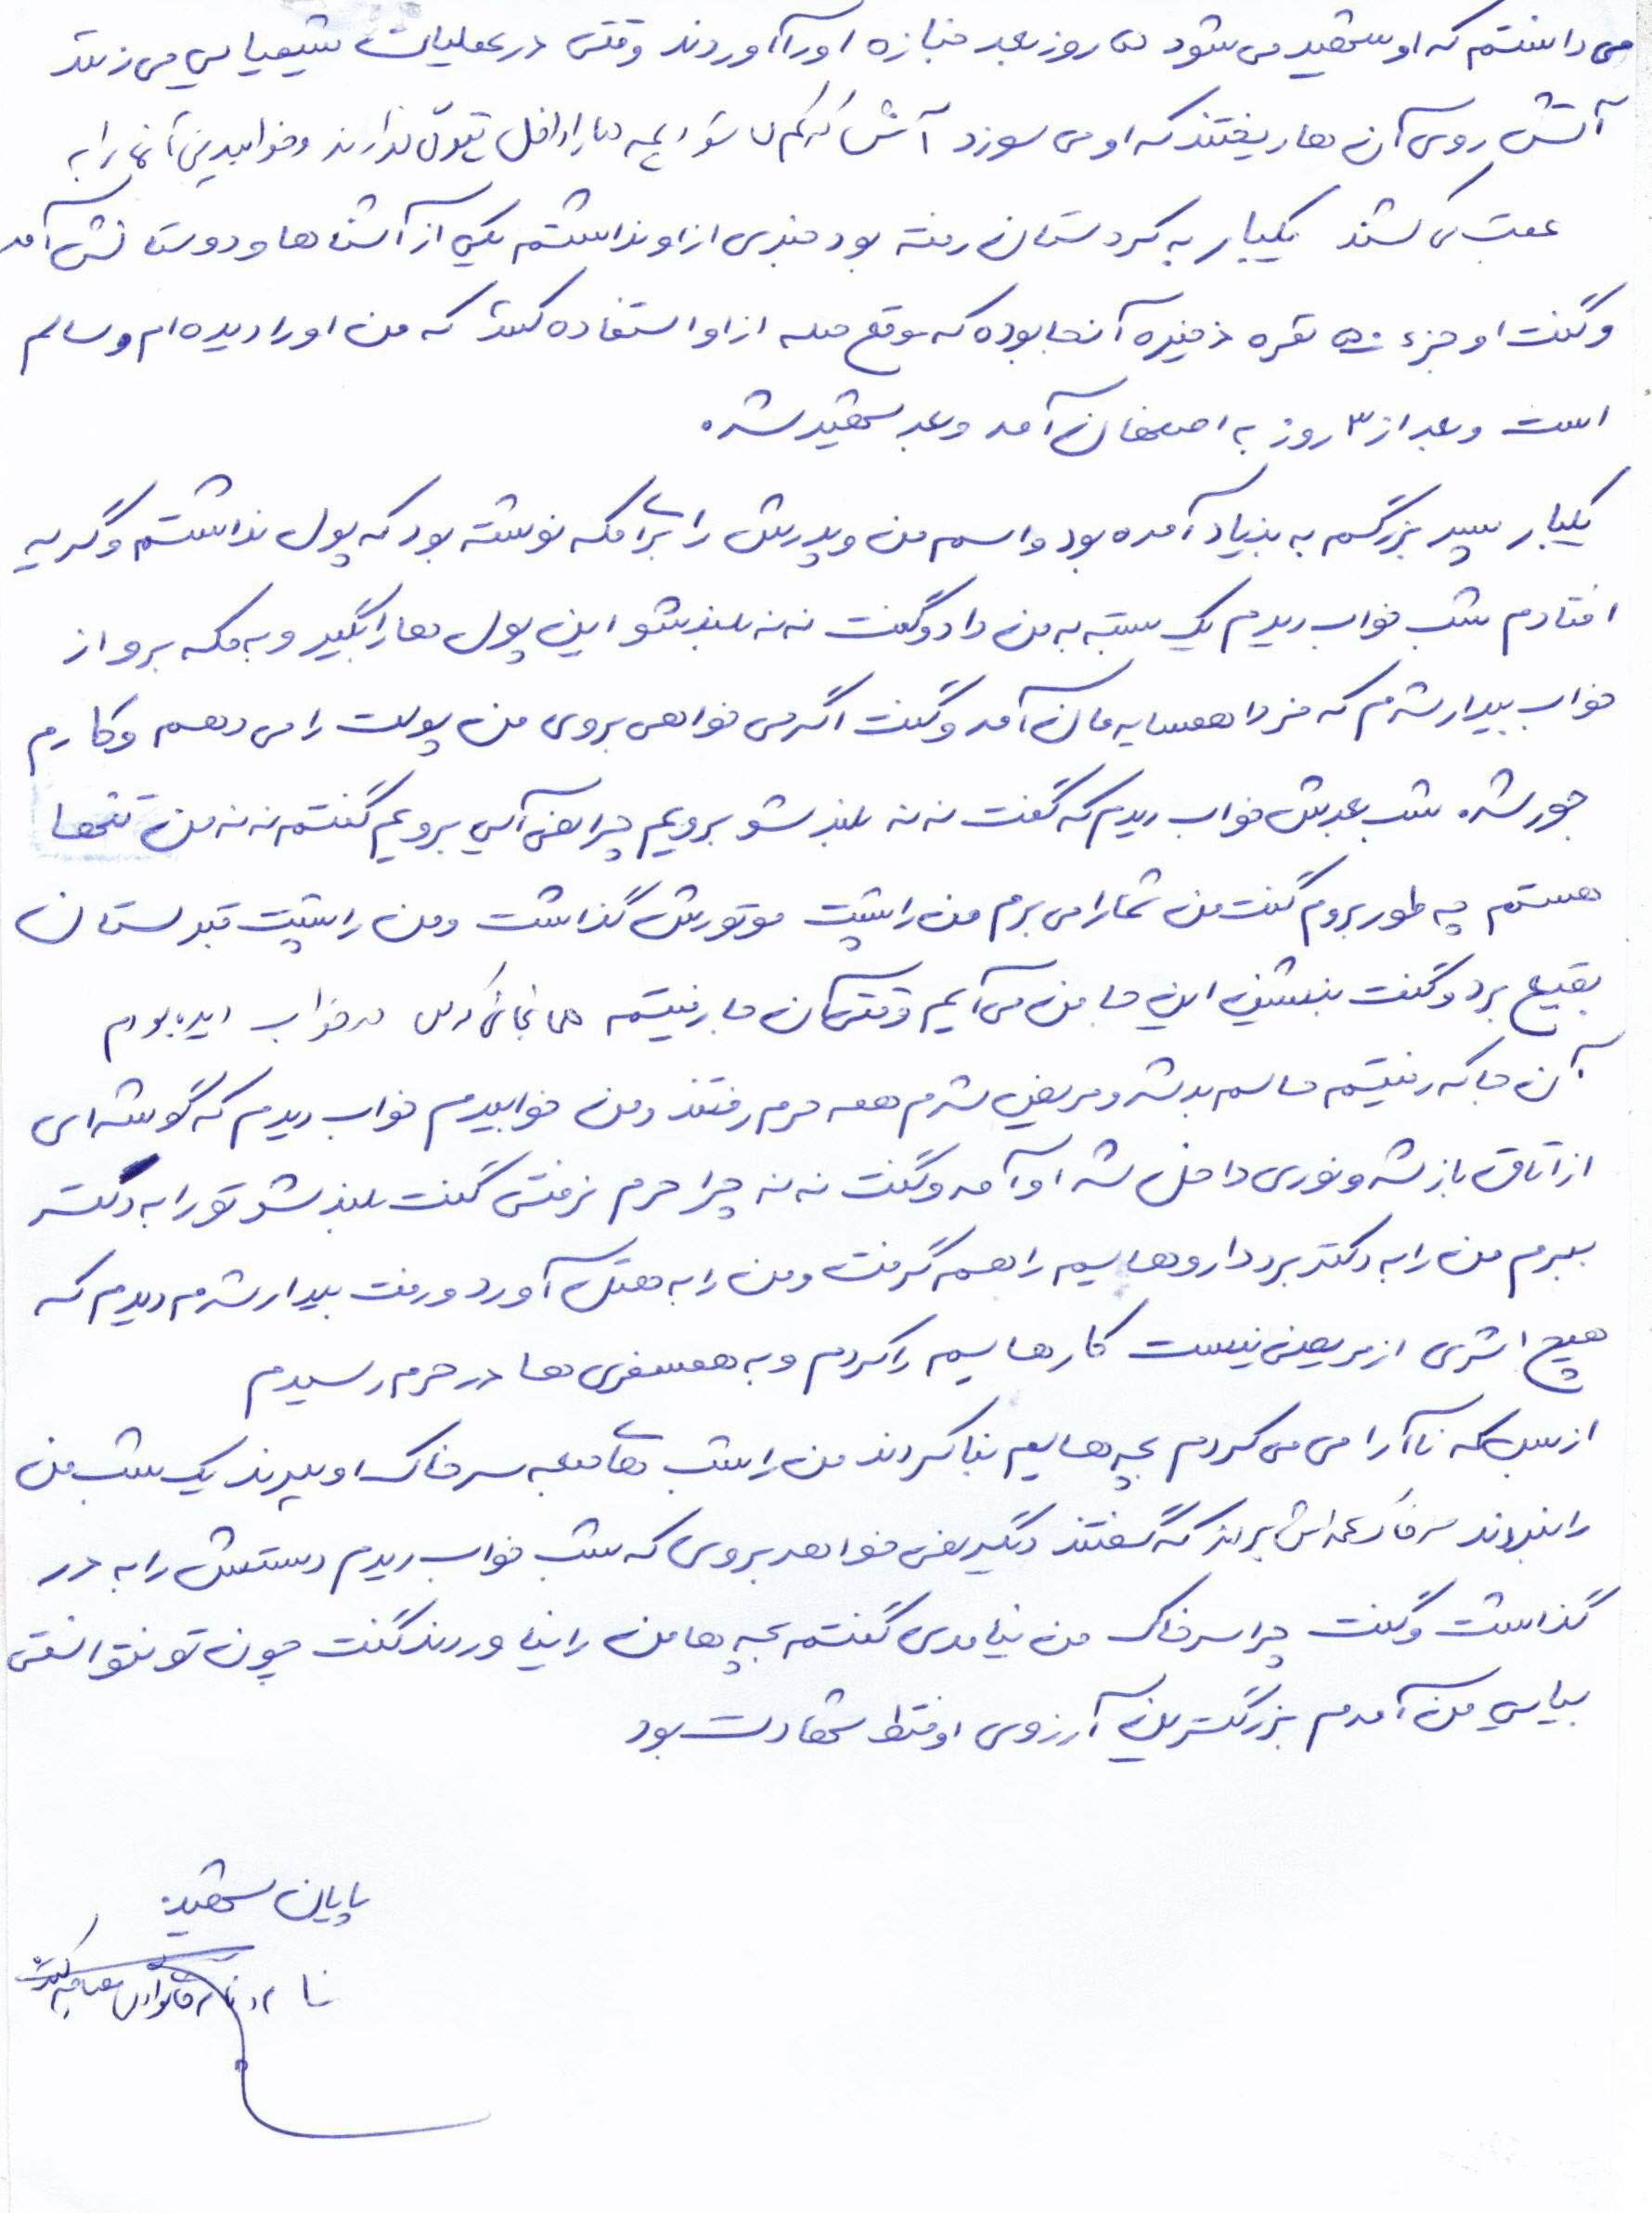 می دانستم که او شهید می شود ۵ روز بعد جنازه او را آوردند وقتی در عملیات شیمیایی می زنند
آتش روی آن ها ریختند که او می سوزد آتش که کم شود بچه ها را داخل پتو می گذارند و خوابیدنی آنها را به
عقب می کشند یکبار به کردستان رفته بود خبری از او نداشتم یکی از آشنا ها و دوستانش آمد
و گفت او جزء ۵۰ نفره ذخیره آنجا بوده که موقع حمله از او استفاده کنند که من او را دیده ام و سالم
است و بعد از ۳ روز به اصفهان آمد و بعد شهید شد.
یکبار پسر بزرگم به بنیاد آمده بود و اسم من و پدرش را برای مکه نوشته بود که پول نداشتم و گریه
افتادم شب خواب دیدم یک بسته به من داد و گفت نه نه بلند شو این پول ها را بگیر و به مکه برو از
خواب بیدار شدم که فردا همسایه مان آمد و گفت اگر می خواهی بروی من پولت را می دهم و کارم
جور شد. شب بعدش خواب دیدم که گفت نه نه بلند شو برویم چرا نمی آیی برویم گفتم نه نه من تنها
هستم چه طور بروم گفت من شما را می برم من را پشت موتورش گذاشت و من را پشت قبرستان
بقیع برد و گفت بنشین این جا من می آیم وقتی آن جا رفتیم همانجائی که من در خواب دیده بودم
آن جا که رفتیم حالم بد شد و مریض شدم همه حرم رفتند و من خوابیدم خواب دیدم که گوشه ای
از اتاق باز شد و نوری داخل شد او آمد و گفت نه نه چرا حرم نرفتی گفت بلند شو تو را به دکتر
ببرم من را به دکتر برد داروهایم را هم گرفت و من را به هتل آورد و رفت بیدار شدم دیدم که
هیچ اثری از مریضی نیست کارهایم را کردم و به همسفری ها در حرم رسیدم
از بس که ناآرامی می کردم بچه هایم بنا کردند من را شب های جمعه سر خاک او ببرند یک شب من
را نبردند سر خاک که گفتند دیگر نمی خواهد بروی که شب خواب دیدم دستش را به در
گذاشت و گفت چرا سر خاک من نیامدی گفتم بچه ها من را نیاوردند گفت چون تو نتوانستی
بیایی من آمدم بزرگترین آرزوی او فقط شهادت بود
پایان شهید: